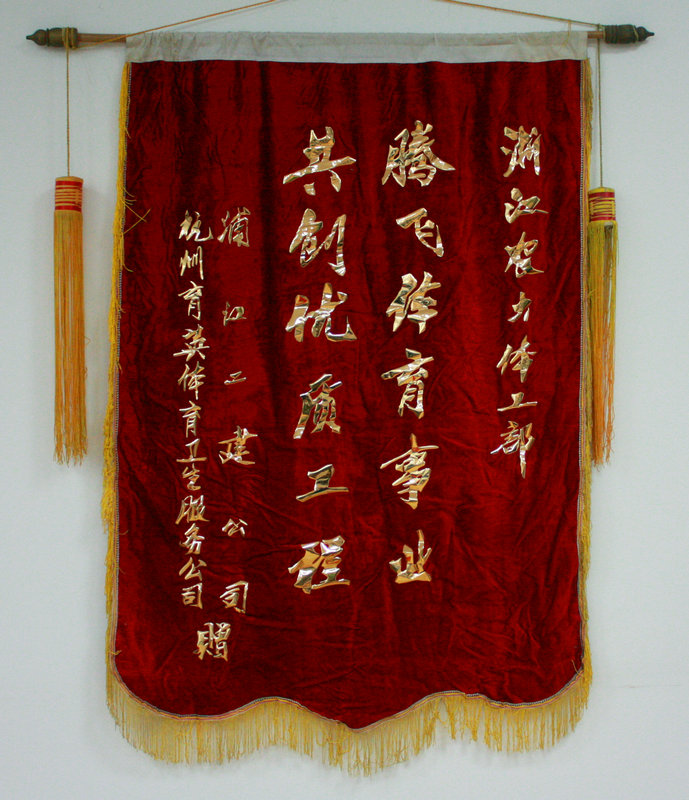 浙江农大体工部
腾飞体育事业
共创优质工程
浦江二建公司
杭州育英体育卫生服务公司
赠